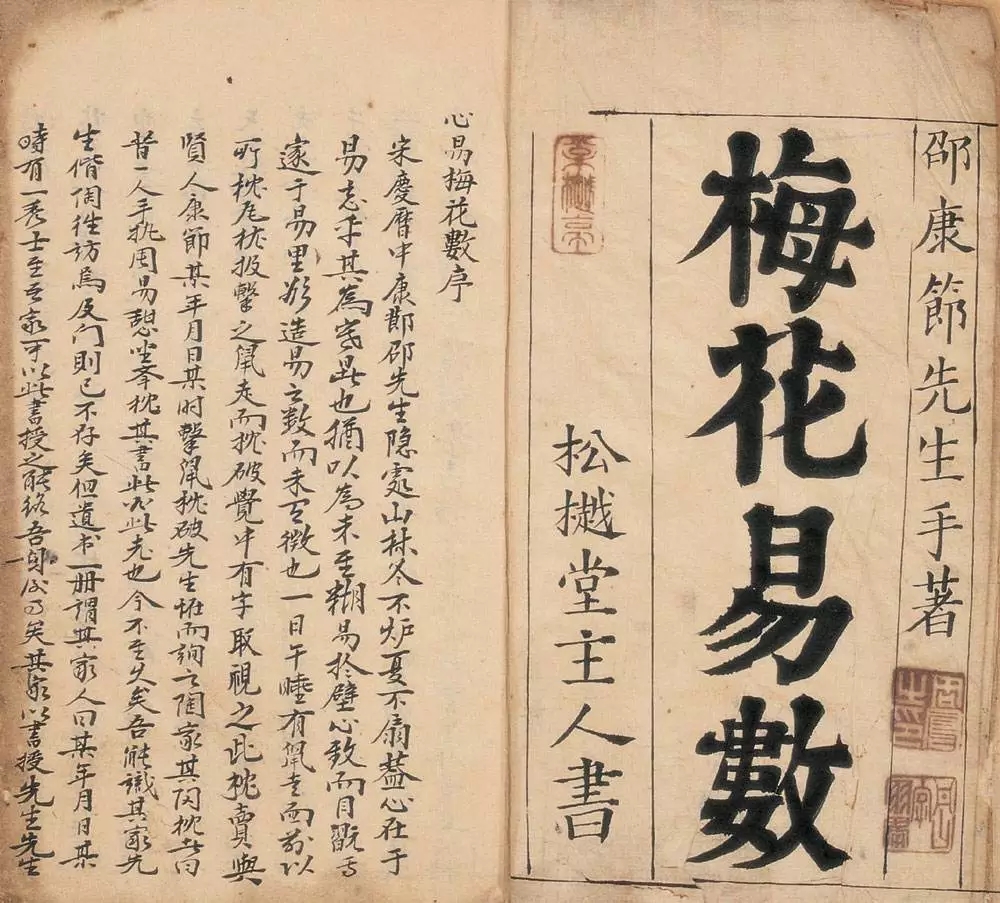 邵康節先生手著
梅花易數
松樾堂主人書
心易梅花數序
宋慶曆中康節邵先生隐處山林冬不炉夏不扇蓋心在于
易忘乎其為寒暑也猶以為未至糊易於壁心致而目翫焉
邃于易里欲造易之数而未有徵也一日午睡有鼠走而前以
所枕瓦枕投擊之鼠走而枕破覺中有字取視之此枕賣與
賢人康節某年月日某时擊鼠枕破先生恠而詢之陶家其陶枕者曰
昔一人手执周易憩坐举枕其書此必此老也今不至久矣吾能識其家先
生偕陶往訪焉及门則已不存矣但遺书一册謂其家人曰某年月日某
時有一秀士至吾家可以此書授之能終吾身後事矣其家以書授先生先生